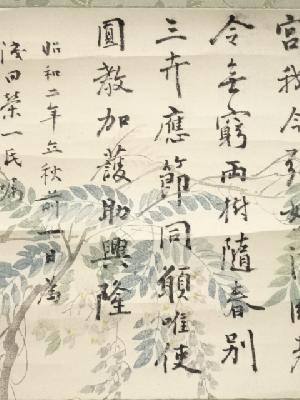 宮我今
令無窮兩樹隨春別
三卉應節同願唯使
圓教加護助興隆
昭和二年立秋前一日為
淺田榮一氏